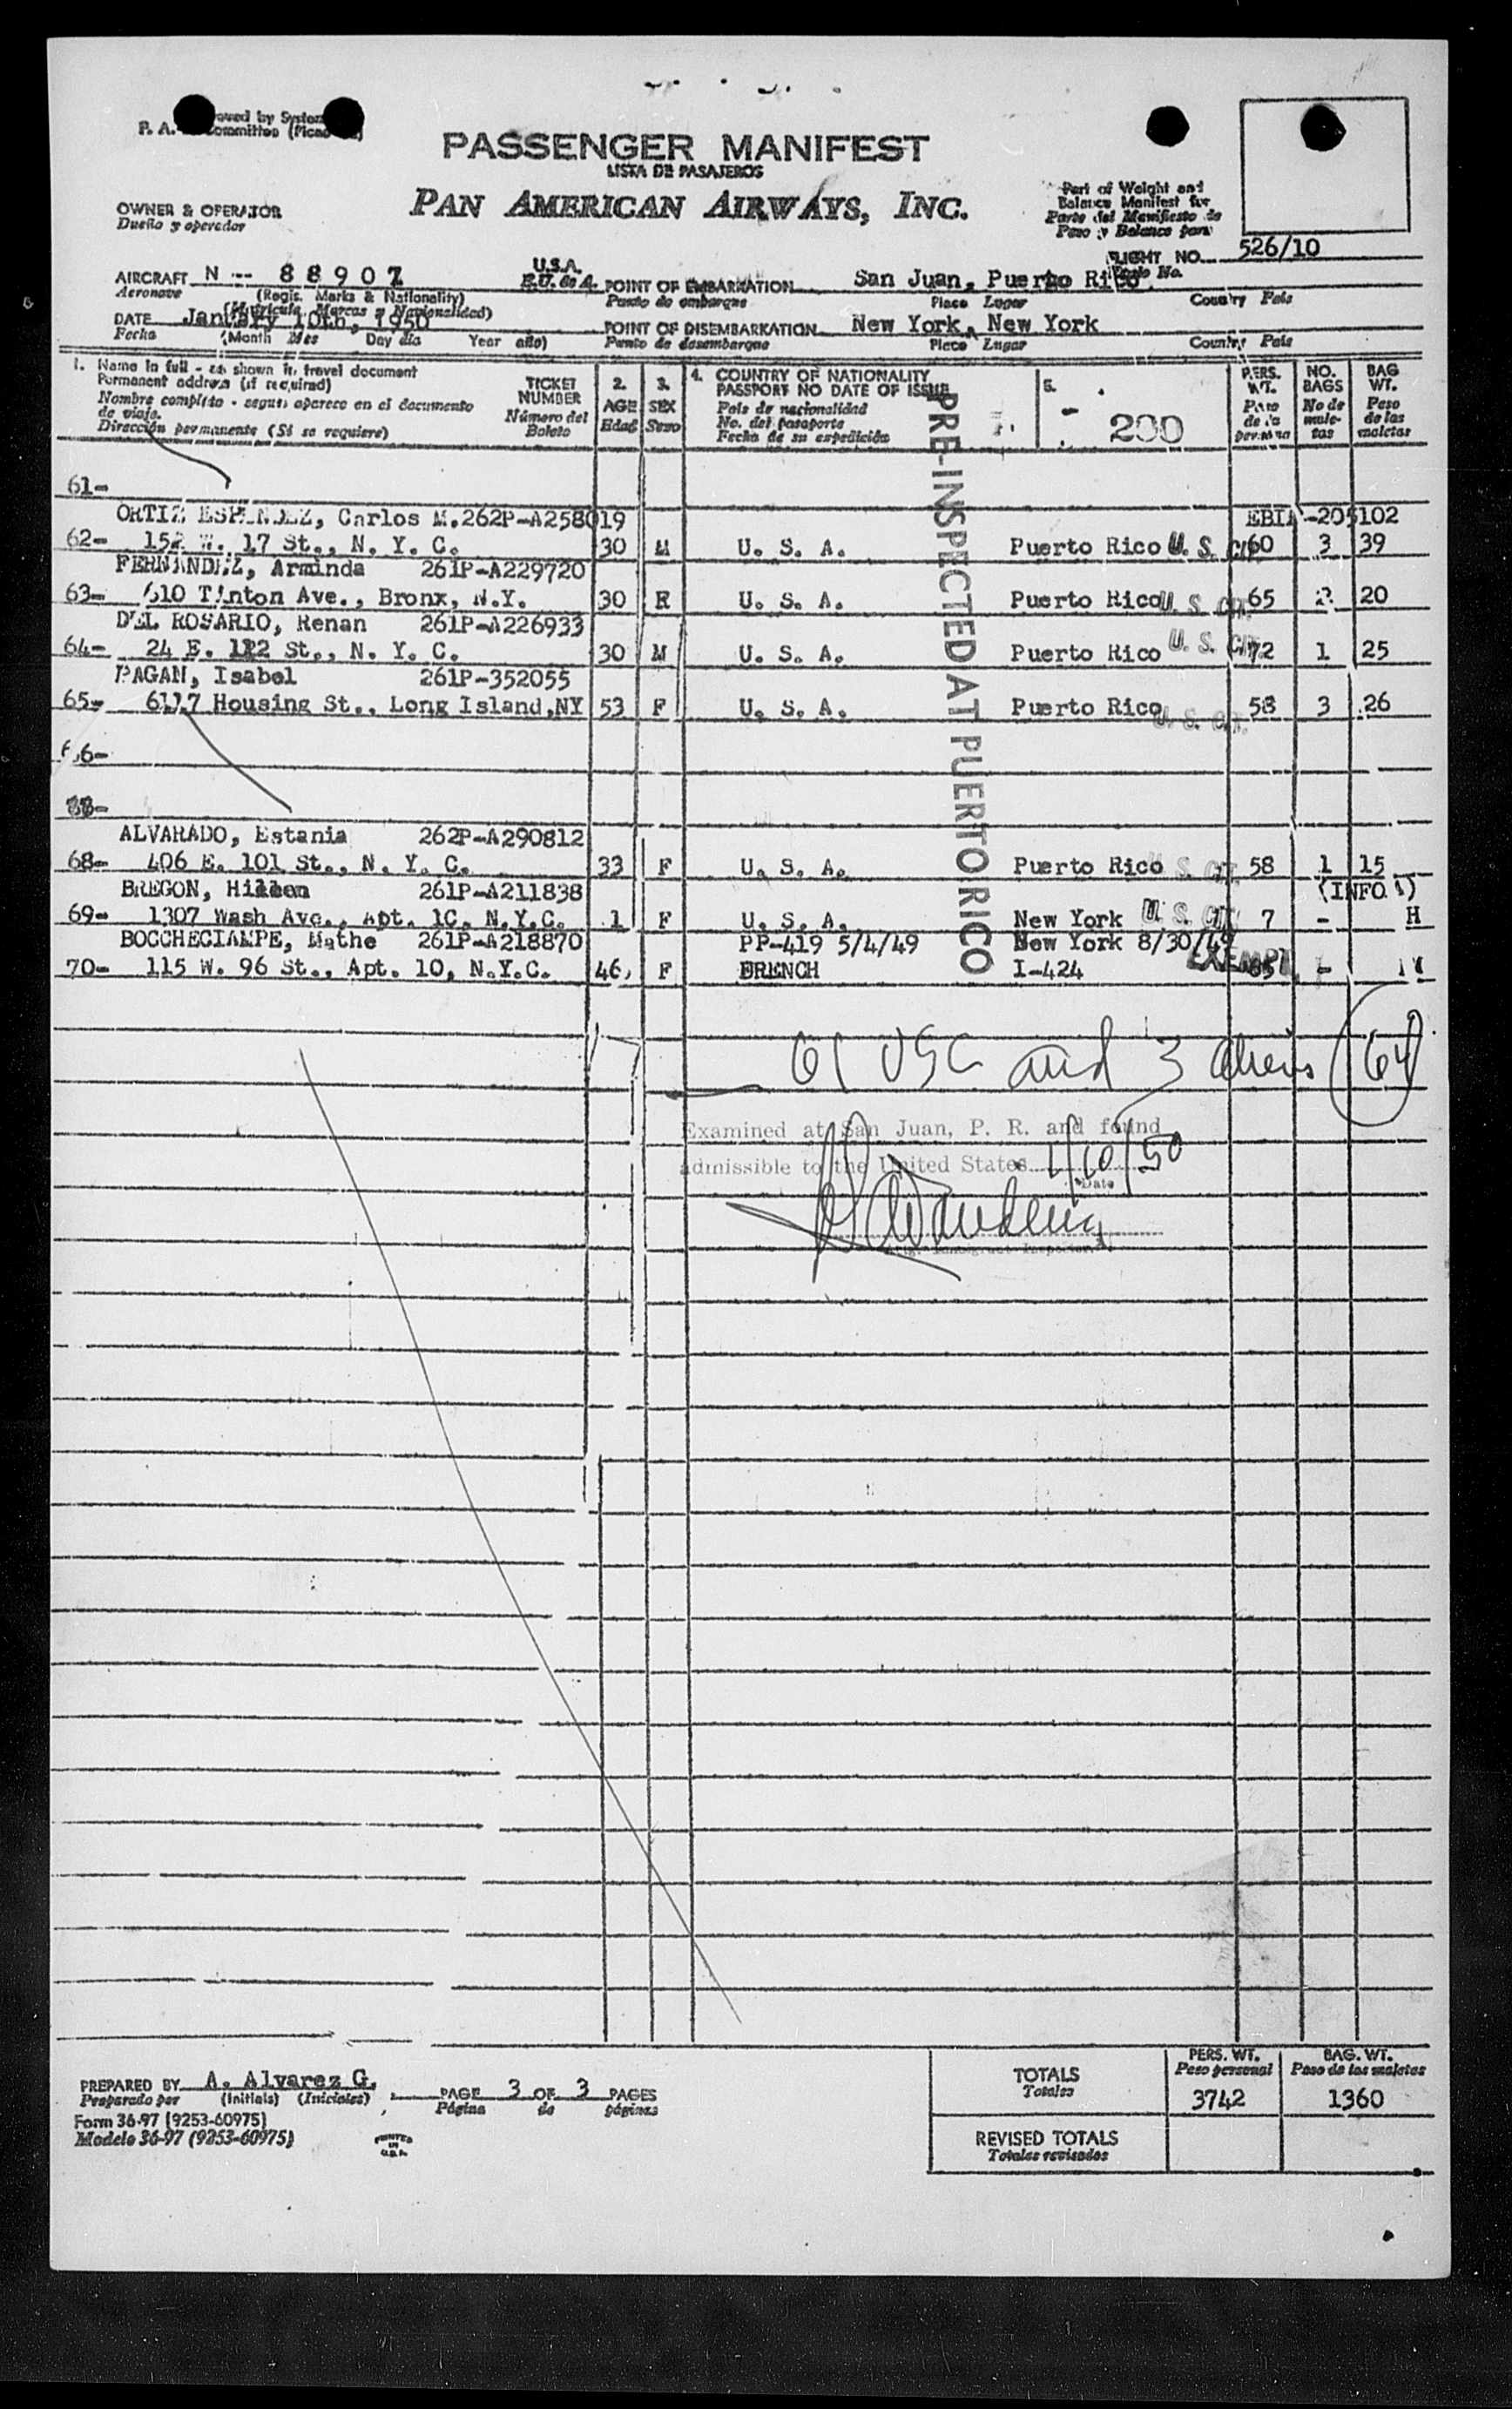 P. A.
PASSENGER MANIFEST
LISTA DE PASAJEROS
PAN AMERICAN AIRWAYS, INC.
OWNER & OPERATOR
Dueño y operador
Part of Weight and
Balance Manifest for
Parte del Manifiesto de
Peso y Balance para
FLIGHT NO. 526/10
Vuelo No.
AIRCRAFT N -- 88907 U.S.A.
Aeronave (Regis. Marks & Nationality) E.U. de A.
(Matricula Marcas y Nacionalidad)
POINT OF EMBARKATION San Juan, Puerto Rico
Punto de embarque Place Lugar Country Pais
DATE January 10th, 1950
Fecha (Month Mes Day dia Year año)
POINT OF DISEMBARKATION New York, New York
Punto de desembarque Place Lugar Country Pais
1. Name in full - as shown in travel document
Permanent address (if required)
Nombre completo - segun aparece en el documento
de viaje.
Direccion permanente (Si se requiere)
TICKET
NUMBER
Número del
Boleto
2.
AGE
Edad
3.
SEX
Sexo
4. COUNTRY OF NATIONALITY
PASSPORT NO DATE OF ISSUE
Pais de nacionalidad
No. del pasaporte
Fecha de su expedición
5.
200
PERS.
WT.
Peso
de la
persona
NO.
BAGS
No de
male-
tas
BAG
WT.
Peso
de las
maletas
PRE-INSPECTED AT PUERTO RICO
61-
ORTIZ , Carlos M. 262P-A258019
62- 152 W. 17 St., N. Y. C. 30 M U. S. A. Puerto Rico U. S. CIT. 60 3 39
FERNANDEZ, Arminda 261P-A229720
63- 610 Tinton Ave., Bronx, N.Y. 30 U. S. A. Puerto Rico U. S. CIT. 65 2 20
DEL ROSARIO, Renan 261P-A226933
64- 24 E. 112 St., N. Y. C. 30 M U. S. A. Puerto Rico U. S. CIT. 72 1 25
PAGAN, Isabel 261P-352055
65- 6117 Housing St., Long Island, NY 53 F U. S. A. Puerto Rico U. S. CIT. 58 3 26
66-
ALVARADO, Estania 262P-A290812
68- 406 E. 101 St., N. Y. C. 33 F U. S. A. Puerto Rico U. S. CIT. 58 1 15
BREGON, 261P-A211838 (INFO 1)
69- 1307 Wash Ave., Apt. 1C, N.Y.C. 1 F U. S. A. New York U. S. CIT. 7 - H
BOCCHECIAMPE, Mathe 261P-A218870 PP-419 5/4/49 New York 8/30/49
70- 115 W. 96 St., Apt. 10, N.Y.C. 46 F FRENCH I-424 EXEMPT -
61 USC and 3 aliens (64)
Examined at San Juan, P. R. and found
admissible to the United States 1/10/50
Date
PREPARED BY A. Alvarez G.
Preparado por (Initials) (Iniciales)
PAGE 3 OF 3 PAGES
Página de páginas
Form 36-97 (9253-60975)
Modelo 36-97 (9253-60975)
PRINTED
IN
U.S.A.
TOTALS
Totales
PERS. WT.
Peso personal
3742
BAG. WT.
Peso de las maletas
1360
REVISED TOTALS
Totales revisados